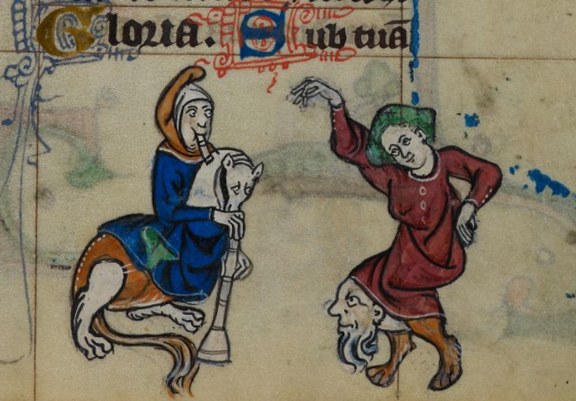 Gloria. Sub tuã